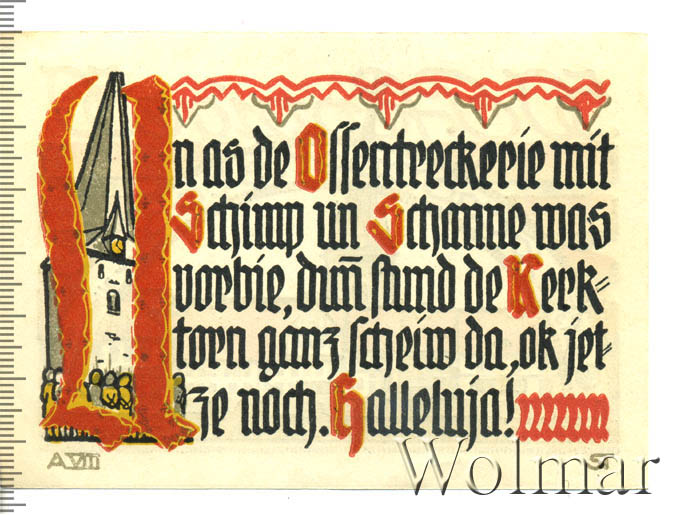 Un as de Ossentreckerie mit
Schimp un Schanne was
vorbie, dunn stund de Kerk-
torn ganz scheiw da, ok jet-
ze noch. Halleluja!
A VIII
Wolmar